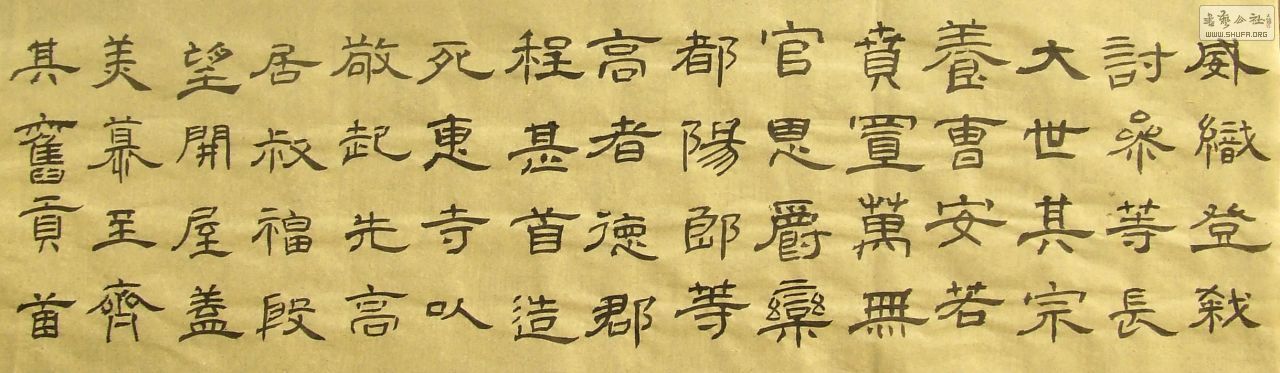 威織登栽
討叅等長
大世其宗
養曹安若
賁置萬無
官思爵欒
都陽郎等
高者德郡
程甚首造
死東寺以
敬起先高
居叔福段
望開屋蓋
美慕至齊
其舊貢首
书艺公社
WWW.SHUFA.ORG